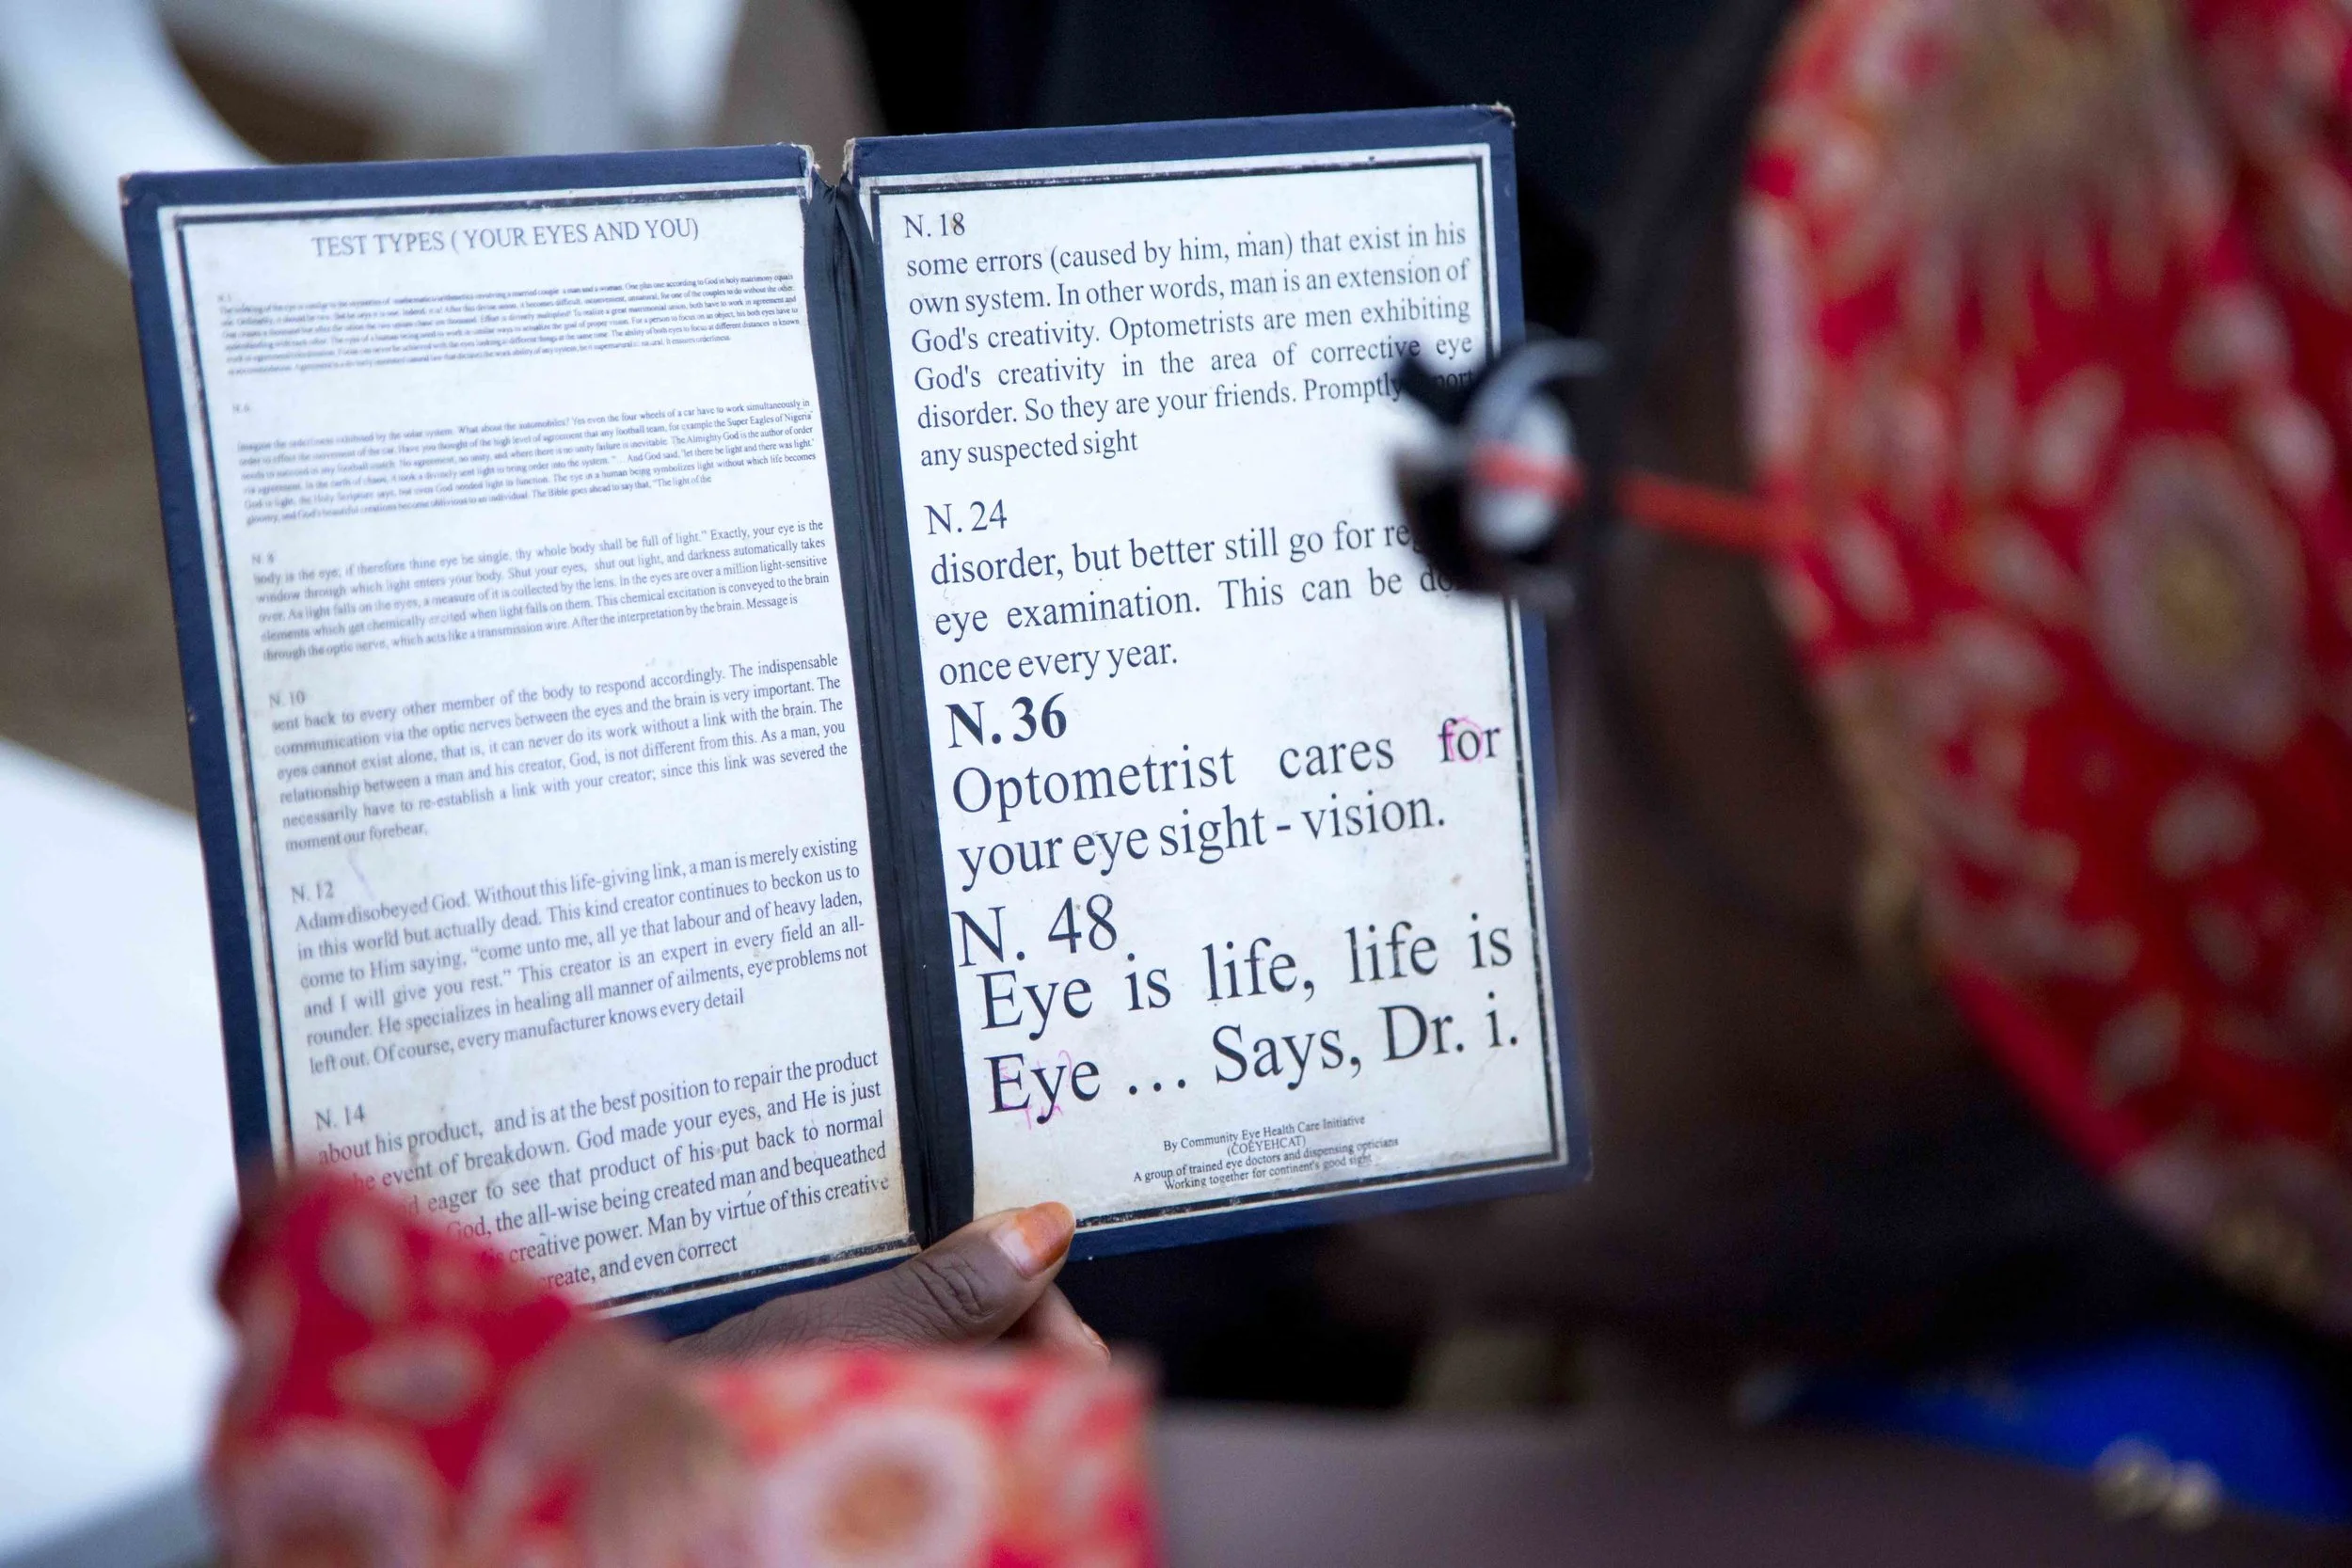 TEST TYPES ( YOUR EYES AND YOU)
one according to God in holy matrimony equals
for one of the couples to do without the other.
both have to work in agreement and
For a person to focus on an object, his both eyes have to
The ability of both eyes to focus at different distances is known
It ensures orderliness.
N. 6
Imagine the orderliness exhibited by the solar system. What about the automobiles? Yes even the four wheels of a car have to work simultaneously in
order to effect the movement of the car. Have you thought of the high level of agreement that any football team, for example the Super Eagles of Nigeria
needs to succeed in any football match. No agreement, no unity, and where there is no unity failure is inevitable. The Almighty God is the author of order
agreement. In the earth of chaos, it took a divinely sent light to bring order into the system. "... And God said, 'let there be light and there was light.'
God is light, the Holy Scripture says, but even God needed light to function. The eye in a human being symbolizes light without which life becomes
gloomy, and God's beautiful creations become oblivious to an individual. The Bible goes ahead to say that, "The light of the
N. 8
body is the eye; if therefore thine eye be single, thy whole body shall be full of light." Exactly, your eye is the
window through which light enters your body. Shut your eyes, shut out light, and darkness automatically takes
over. As light falls on the eyes, a measure of it is collected by the lens. In the eyes are over a million light-sensitive
elements which get chemically excited when light falls on them. This chemical excitation is conveyed to the brain
through the optic nerve, which acts like a transmission wire. After the interpretation by the brain. Message is
N. 10
sent back to every other member of the body to respond accordingly. The indispensable
communication via the optic nerves between the eyes and the brain is very important. The
eyes cannot exist alone, that is, it can never do its work without a link with the brain. The
relationship between a man and his creator, God, is not different from this. As a man, you
necessarily have to re-establish a link with your creator; since this link was severed the
moment our forebear,
N. 12
Adam disobeyed God. Without this life-giving link, a man is merely existing
in this world but actually dead. This kind creator continues to beckon us to
come to Him saying, "come unto me, all ye that labour and of heavy laden,
and I will give you rest." This creator is an expert in every field an all-
rounder. He specializes in healing all manner of ailments, eye problems not
left out. Of course, every manufacturer knows every detail
N. 14
about his product, and is at the best position to repair the product
event of breakdown. God made your eyes, and He is just
eager to see that product of his put back to normal
God, the all-wise being created man and bequeathed
creative power. Man by virtue of this creative
create, and even correct
N. 18
some errors (caused by him, man) that exist in his
own system. In other words, man is an extension of
God's creativity. Optometrists are men exhibiting
God's creativity in the area of corrective eye
disorder. So they are your friends. Promptly
any suspected sight
N. 24
disorder, but better still go for
eye examination. This can be
once every year.
N. 36
Optometrist cares for
your eye sight - vision.
N. 48
Eye is life, life is
Eye ... Says, Dr. i.
By Community Eye Health Care Initiative
(COEYEHCAT)
A group of trained eye doctors and dispensing opticians
Working together for continent's good sight